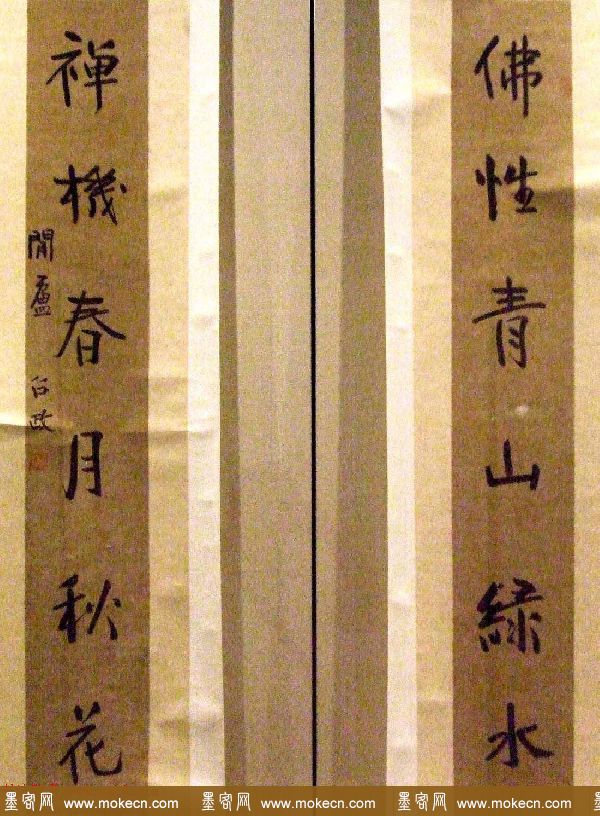 佛性青山綠水
禪機春月秋花
閒廬 台政
墨客网 www.mokecn.com 墨客网 www.mokecn.com 墨客网 www.mokecn.com